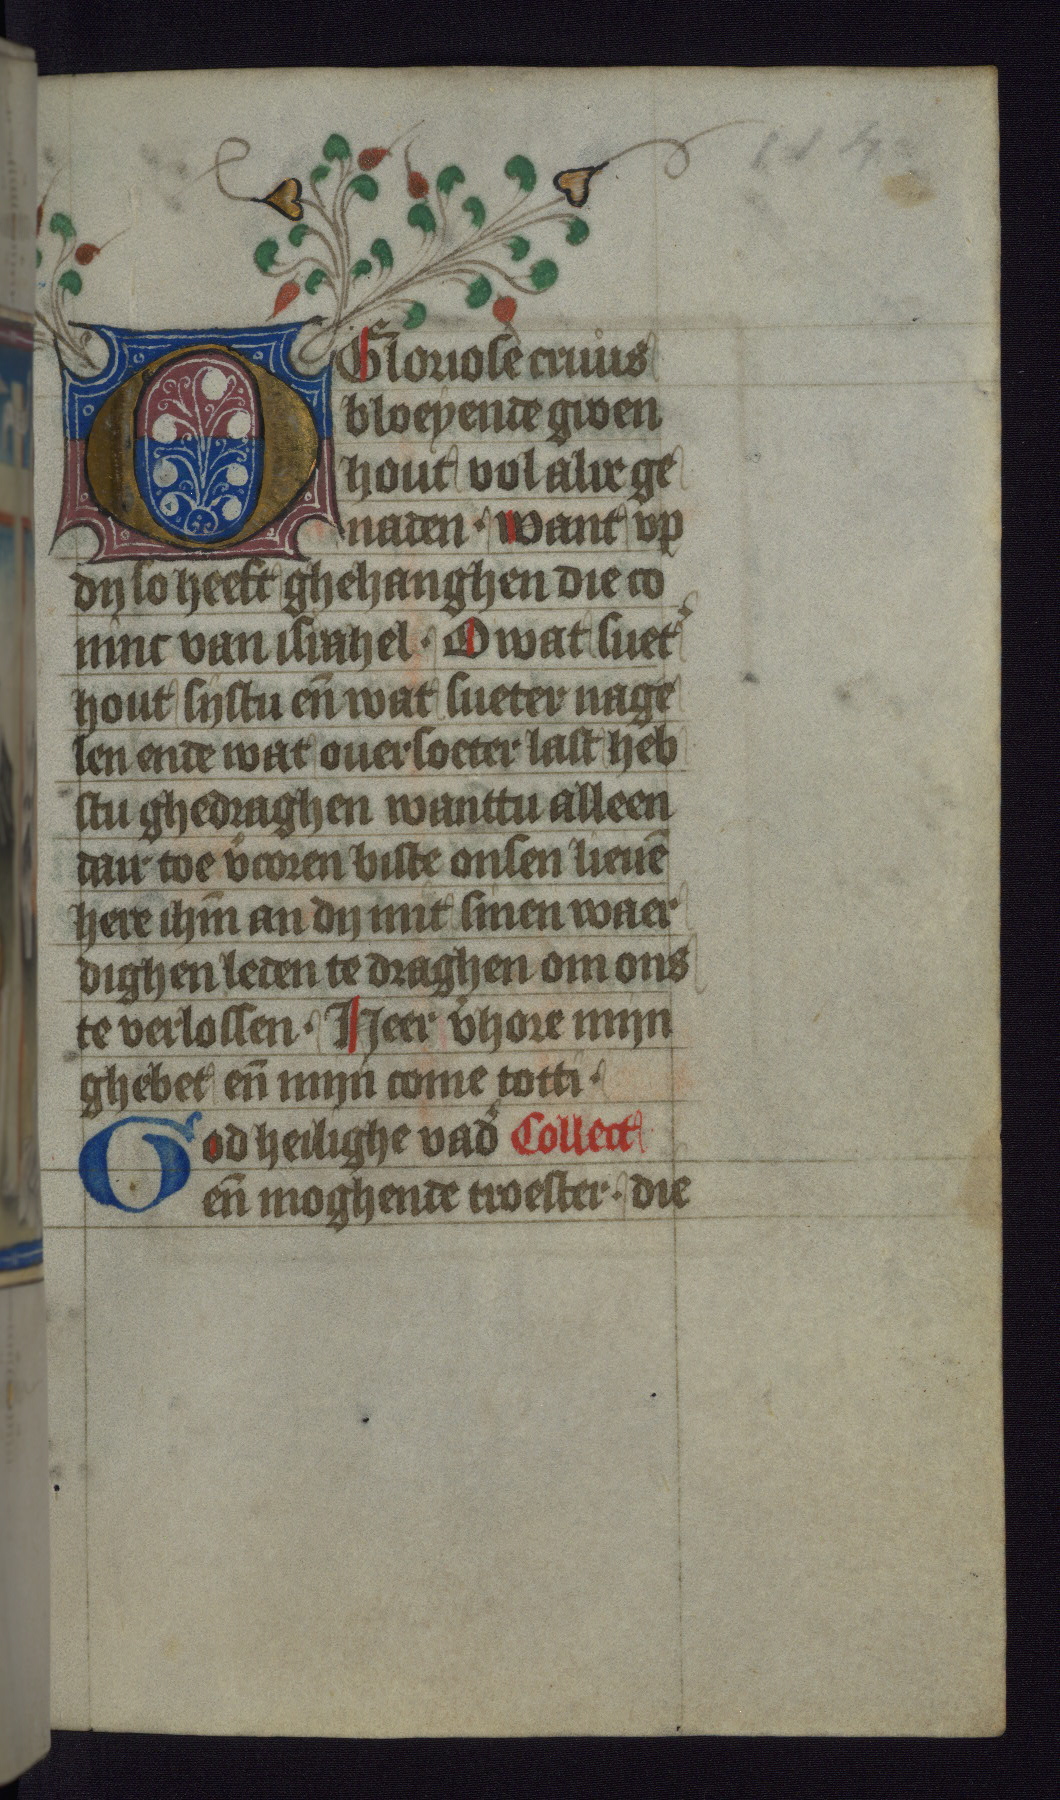 O Gloriose cruus
bloeyende groen
hout vol alre ge
naden · want vp
dy so heeft ghehanghen die co
ninc van israhel · O wat suet᷑
hout sijstu en̄ wat sueter nage
len ende wat ouersoeter last heb
stu ghedraghen wanttu alleen
daer toe v᷑coren biste onsen lieuē
here ihm̄ an dy mit sinen waer
dighen leden te draghen om ons
te verlossen · Heer v᷑hore mijn
ghebet en̄ mijn come totti ·
God heilighe vad᷑ Collect
en̄ moghende troester · die